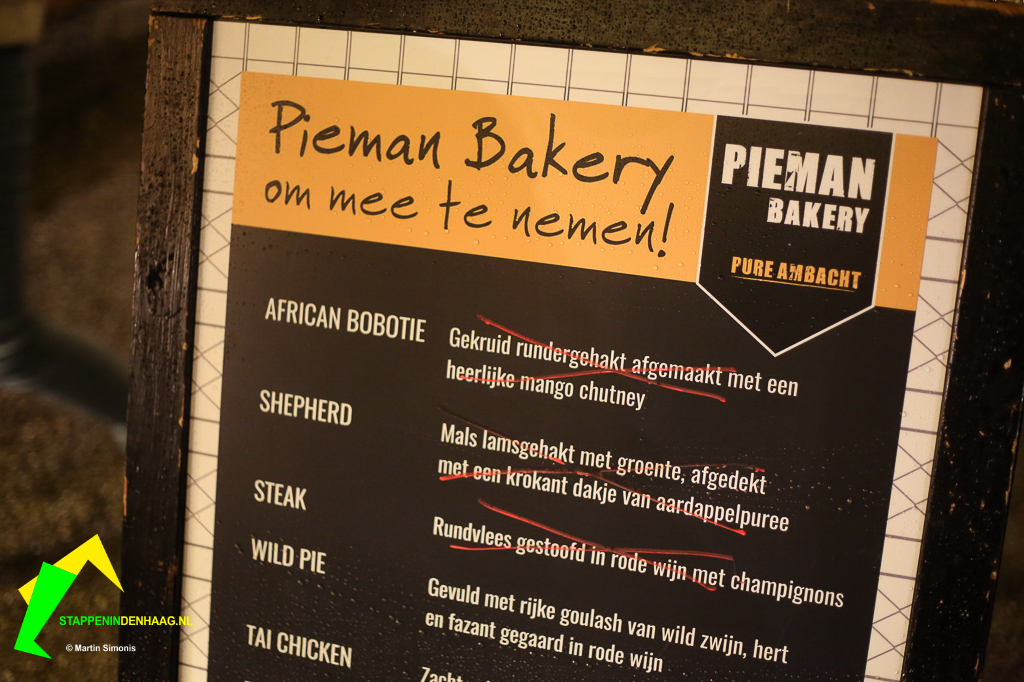 Pieman Bakery
om mee te nemen!
PIEMAN
BAKERY
PURE AMBACHT
AFRICAN BOBOTIE
Gekruid rundergehakt afgemaakt met een
heerlijke mango chutney
SHEPHERD
Mals lamsgehakt met groente, afgedekt
met een krokant dakje van aardappelpuree
STEAK
Rundvlees gestoofd in rode wijn met champignons
WILD PIE
Gevuld met rijke goulash van wild zwijn, hert
en fazant gegaard in rode wijn
TAI CHICKEN
STAPPENINDENHAAG.NL
© Martin Simonis